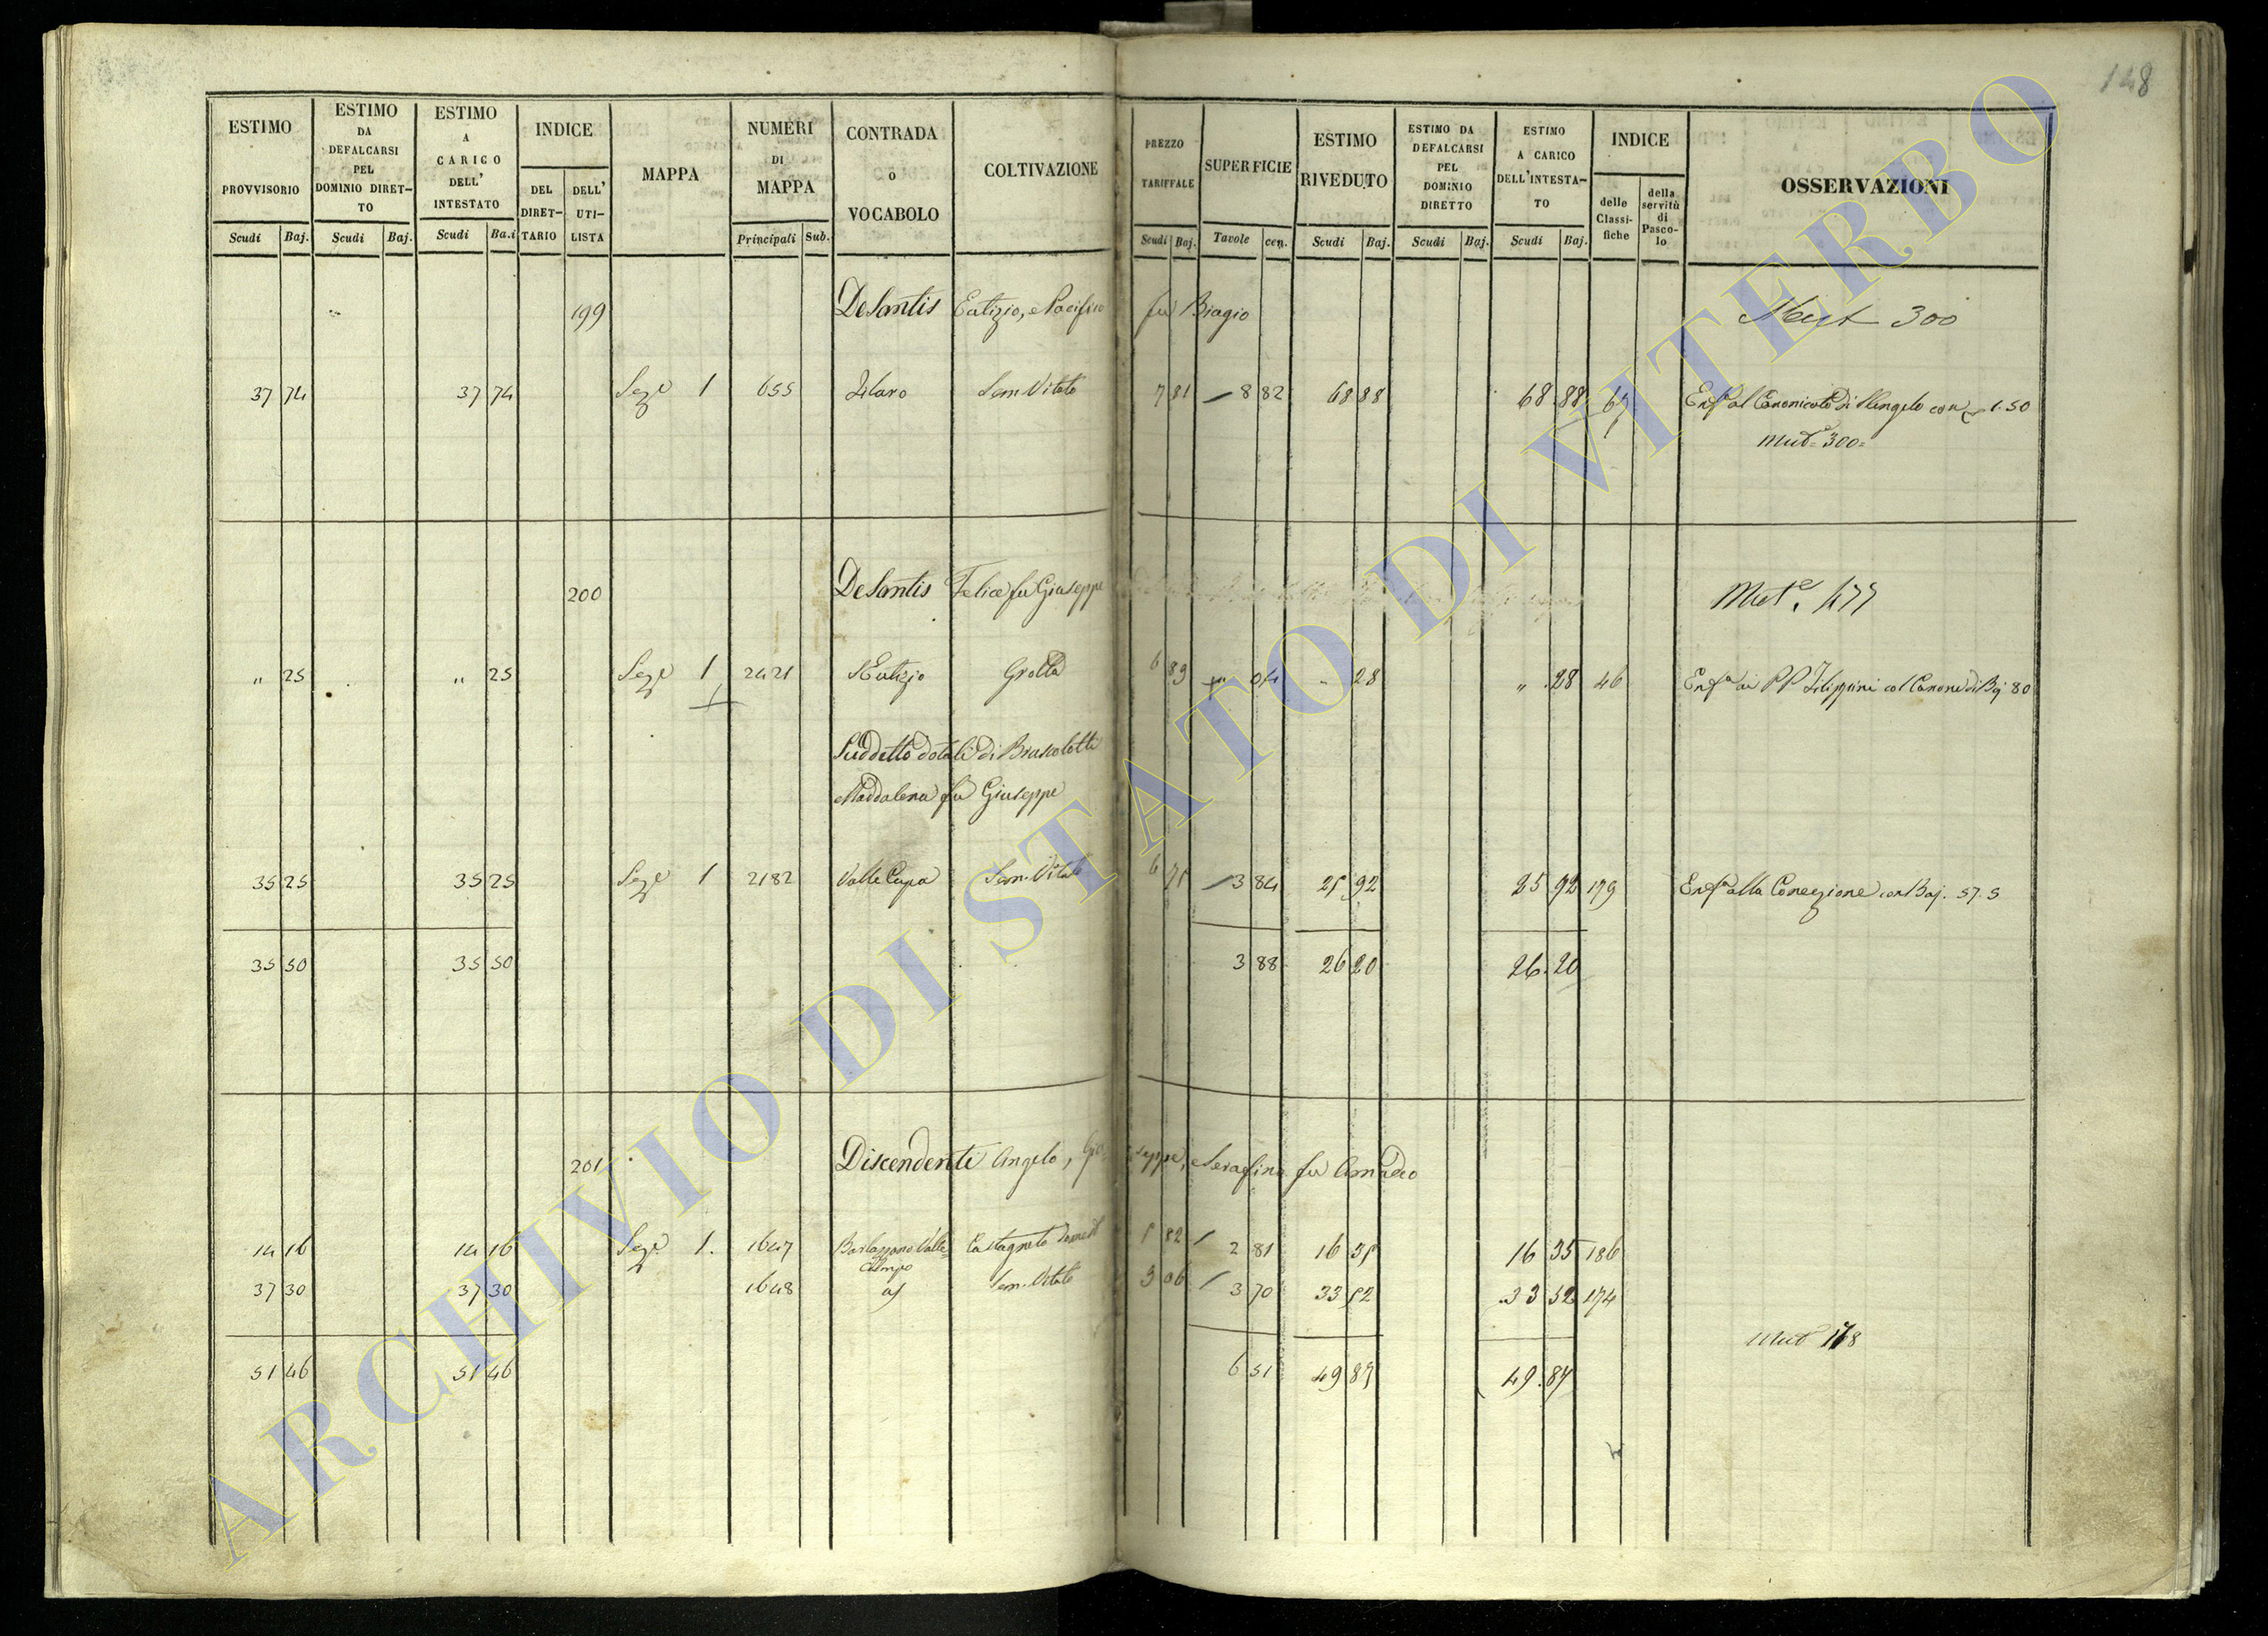 148
ESTIMO PROVVISORIO Scudi Baj.
ESTIMO DA DEFALCARSI PEL DOMINIO DIRET-TO Scudi Baj.
ESTIMO A CARICO DELL' INTESTATO Scudi Ba.i
INDICE DEL DIRET-TARIO DELL' UTI-LISTA
MAPPA
NUMERI DI MAPPA Principali Sub.
CONTRADA o VOCABOLO
COLTIVAZIONE
PREZZO TARIFFALE Scudi Baj.
SUPERFICIE Tavole cen.
ESTIMO RIVEDUTO Scudi Baj.
ESTIMO DA DEFALCARSI PEL DOMINIO DIRETTO Scudi Baj.
ESTIMO A CARICO DELL'INTESTA-TO Scudi Baj.
INDICE delle Classi-fiche della servitù di Pasco-lo
OSSERVAZIONI
199 DeSantis Eutizio, e Pacifico fu Biagio 300
37 74 37 74 Sez.e 1 655 Sem. Vitato 7 81 8 82 68 88 68.88 67 Enf.a al Canonicato di S Angelo con 1.50
Mut.e 300=
200 DeSantis Felice fu Giuseppe Mut.e 477
" 25 " 25 Sez.e 1 2421 S Eutizio Grotta 6 89 04 " 28 " .28 46 Enf.a ai PP Filippini col Canone di Baj 80
Suddetto dotali di
Maddalena fu Giuseppe
35 25 35 25 Sez.e 1 2182 Valle Cupa Sem. Vitato 6 75 3 84 25 92 25 92 179 Enf.a alla Concezione con Baj. 57.5
35 50 35 50 3 88 26 20 26.20
201 Discendenti Angelo, Giuseppe, e Serafino fu Amadeo
14 16 14 16 Sez.e 1. 1647 Castagneto 5 82 2 81 16 35 16 35 186
37 30 37 30 1648 Sem. Vitato 9 06 3 70 33 52 33 52 174
Mut.e 178
51 46 51 46 6 51 49 87 49.87
ARCHIVIO DI STATO DI VITERBO